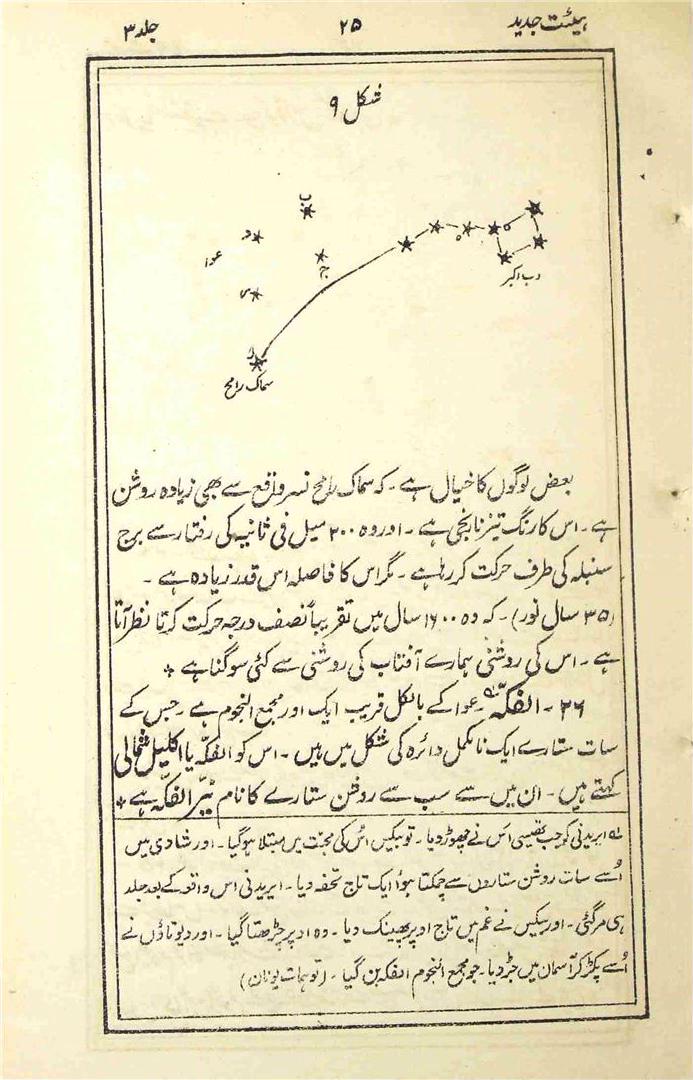 ہیئت جدید ۲۵ جلد ۳
شکل ۹
ب
د
عوا
ج
س
دب اکبر
سماک رامح
بعض لوگوں کا خیال ہے۔ کہ سماک رامح نسر واقع سے بھی زیادہ روشن
ہے۔ اس کا رنگ تیز نارنجی ہے۔ اور وہ ۲۰۰ میل فی ثانیہ کی رفتار سے برج
سنبلہ کی طرف حرکت کر رہا ہے۔ مگر اس کا فاصلہ اس قدر زیادہ ہے۔
(۳۵ سال نور)۔ کہ وہ ۱۶۰۰ سال میں تقریباً نصف درجہ حرکت کرتا نظر آتا
ہے۔ اس کی روشنی ہمارے آفتاب کی روشنی سے کئی سو گنا ہے *
۲۶۔ الفکّہ۔ عوا کے بالکل قریب ایک اور مجمع النجوم ہے۔ جس کے
سات ستارے ایک نامکمل دائرہ کی شکل میں ہیں۔ اس کو الفکّہ یا اکلیل شمالی
کہتے ہیں۔ ان میں سے سب سے روشن ستارے کا نام نیّر الفکّہ ہے *
ایریدنی کو جب تھیسی اس نے چھوڑ دیا۔ تو بیکس اُس کی محبت میں مبتلا ہو گیا۔ اور شادی میں
اُسے سات روشن ستاروں سے چمکتا ہؤا ایک تاج تحفہ دیا۔ ایریدنی اس واقعہ کے بعد جلد
ہی مر گئی۔ اور بیکس نے غم میں تاج اوپر پھینک دیا۔ وہ اوپر چڑھتا گیا۔ اور دیوتاؤں نے
اُسے پکڑ کر آسمان میں جڑ دیا۔ جو مجمع النجوم الفکہ بن گیا۔ (توہمات یونان)